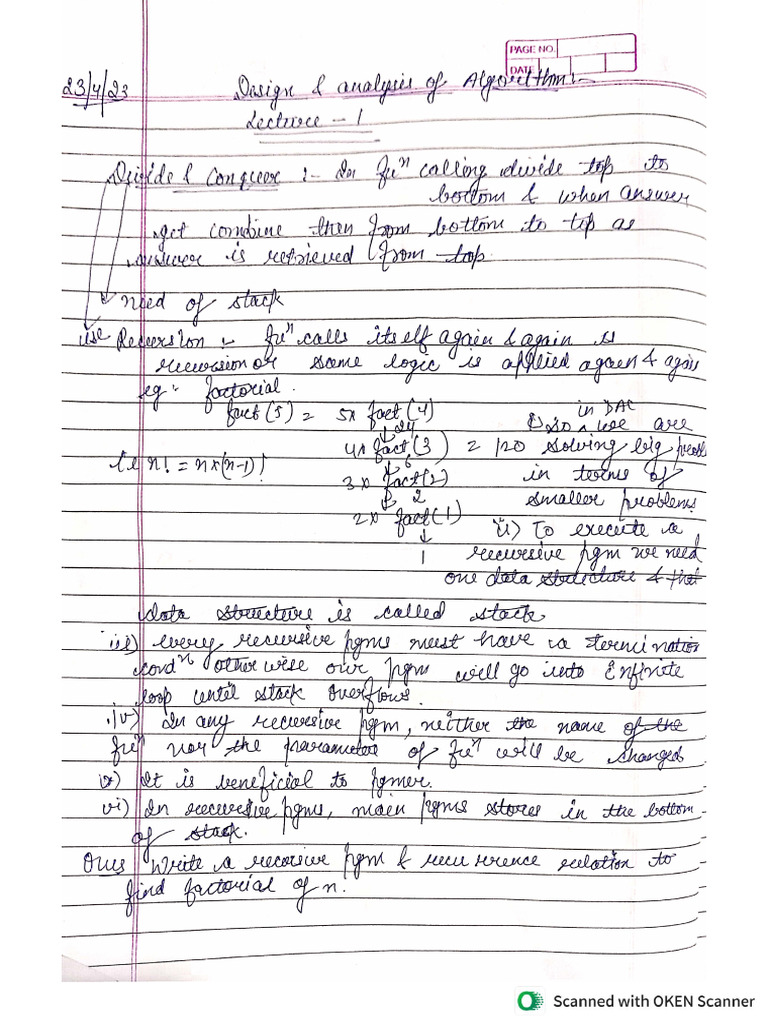 PAGE NO.
DATE
23/4/23 Design & analysis of Algorithm:-
Lecture - 1
Divide & Conquer :- In fuⁿ calling divide top to
bottom & when answer
get combine then from bottom to top as
answer is retrieved from top
need of stack
use Recursion :- fuⁿ calls itself again & again is
recursion or same logic is applied again & again
eg:- factorial.
fact(5) = 5 x fact(4)
↓ 24
4 x fact(3) = 120
↓ 6
ie n! = n x (n-1)!
3 x fact(2)
↓ 2
2 x fact(1)
↓
1
i) so in DAC we are
solving big prob
in terms of
smaller problems
ii) To execute a
recursive pgm we need
one data structure & that
data structure is called stack
iii) every recursive pgms must have a termination
condⁿ otherwise our pgm will go into Enfinite
loop until stack overflows.
iv) In any recursive pgm, neither the name of the
fuⁿ nor the parameter of fuⁿ will be changed
v) It is beneficial to pgmer.
vi) In recursive pgms, main pgms stores in the bottom
of stack.
Ques Write a recorsive pgm & recurrence relation to
find factorial of n.
Scanned with OKEN Scanner